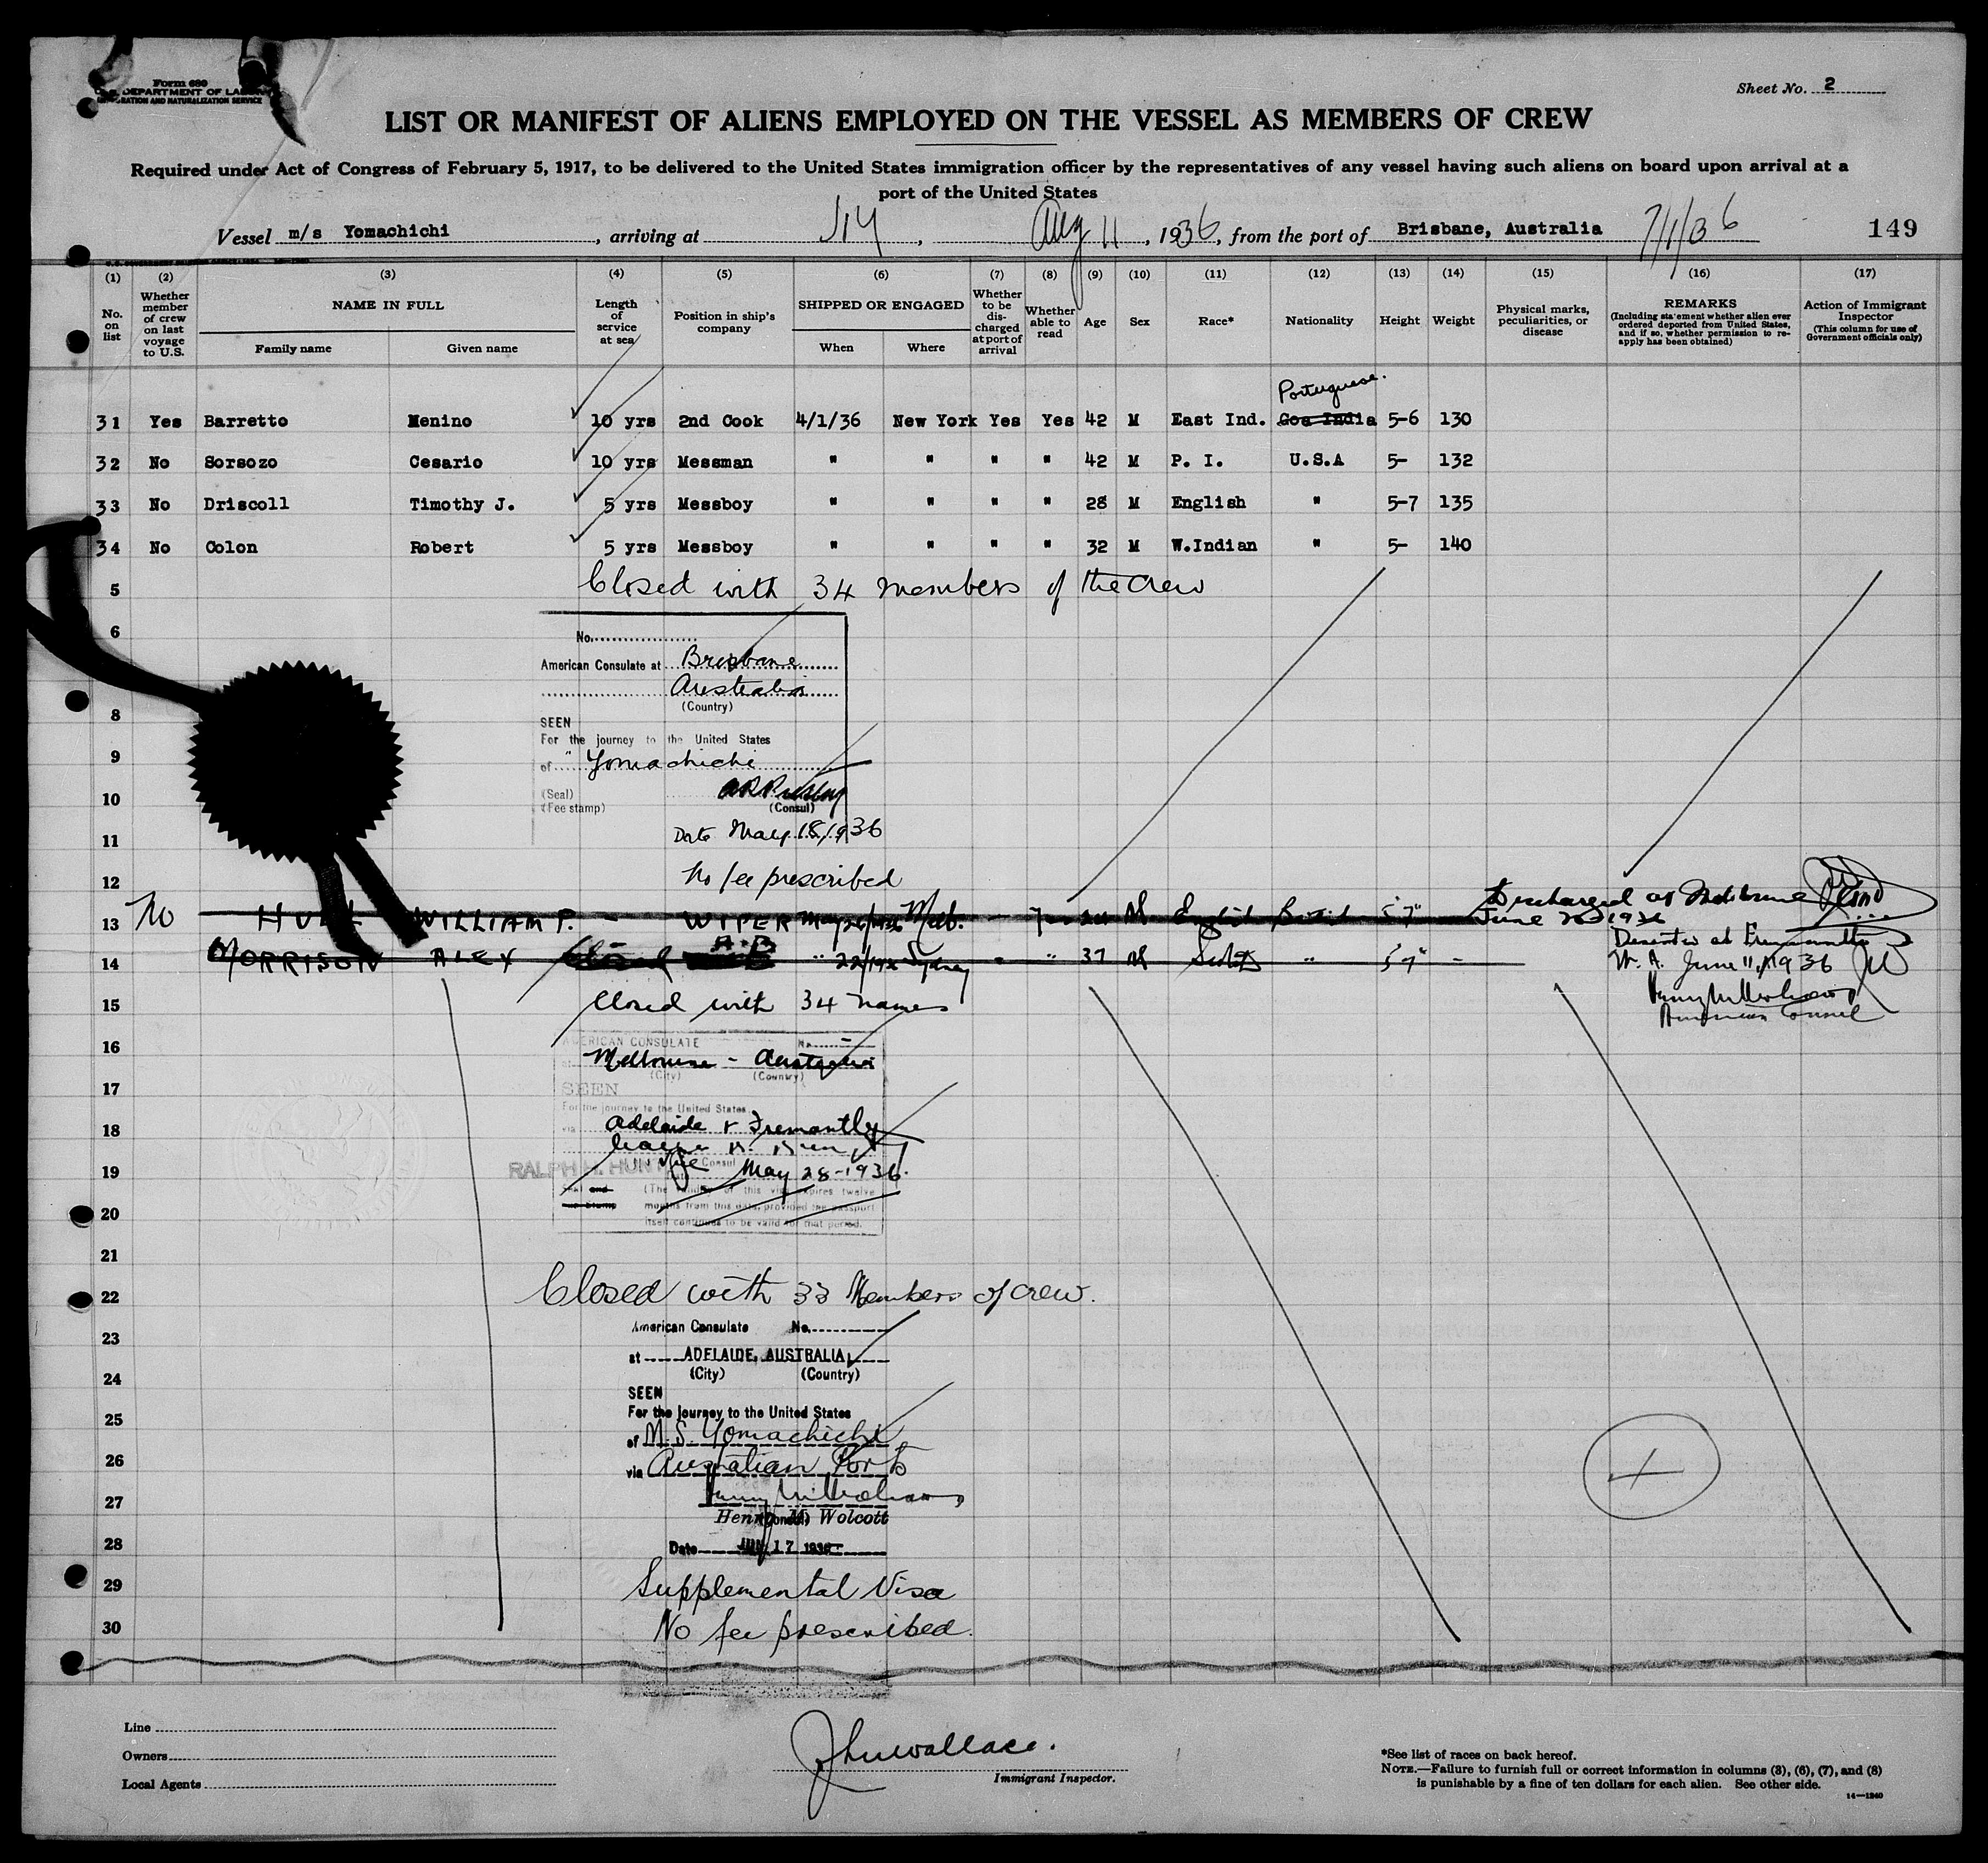 Form 680
U. S. DEPARTMENT OF LABOR
IMMIGRATION AND NATURALIZATION SERVICE
Sheet No. 2
LIST OR MANIFEST OF ALIENS EMPLOYED ON THE VESSEL AS MEMBERS OF CREW
Required under Act of Congress of February 5, 1917, to be delivered to the United States immigration officer by the representatives of any vessel having such aliens on board upon arrival at a
port of the United States
Vessel m/s Yomachichi, arriving at NY, Aug 11, 1936, from the port of Brisbane, Australia 149
(1) (2) (3) (4) (5) (6) (7) (8) (9) (10) (11) (12) (13) (14) (15) (16) (17)
No. on list
Whether member of crew on last voyage to U.S.
NAME IN FULL
Family name Given name
Length of service at sea
Position in ship's company
SHIPPED OR ENGAGED
When Where
Whether to be discharged at port of arrival
Whether able to read
Age
Sex
Race*
Nationality
Height
Weight
Physical marks, peculiarities, or disease
REMARKS
(Including statement whether alien ever ordered deported from United States, and if so, whether permission to re-apply has been obtained)
Action of Immigrant Inspector
(This column for use of Government officials only)
Portuguese.
31 Yes Barretto Menino 10 yrs 2nd Cook 4/1/36 New York Yes Yes 42 M East Ind. Goa India 5-6 130
32 No Sorsozo Cesario 10 yrs Messman " " " " 42 M P. I. U.S.A 5- 132
33 No Driscoll Timothy J. 5 yrs Messboy " " " " 28 M English " 5-7 135
34 No Colon Robert 5 yrs Messboy " " " " 32 M W.Indian " 5- 140
5 Closed with 34 members of the crew
6
No.
American Consulate at Brisbane
Australia
(Country)
8
SEEN
For the journey to the United States
9
of " Yomachichi
10
(Seal)
(Fee stamp)
(Consul)
11
Date May 18, 1936
12
No fee prescribed
13 No HULL WILLIAM P. - WIPER Melb. M English British 5'7" Discharged at Melbourne
June 1936
14 MORRISON ALEX A.B. " Sydney " " 37 M " 5'7" -
Deserted at Fremantle
W. A. June 11, 1936
American Consul
15 Closed with 34 names
16
AMERICAN CONSULATE No. -
Melbourne - Australia
(City) (Country)
17
SEEN
For the journey to the United States
18
via Adelaide & Fremantle
19
RALPH H. HUNT
Vice Consul
May 28-1936.
(The validity of this visa expires twelve
20
months from this date, provided the passport
itself continues to be valid for that period.
21
22 Closed with 33 Members of crew.
23
American Consulate No.
at ADELAIDE, AUSTRALIA
24
(City) (Country)
SEEN
25
For the journey to the United States
of M.S. Yomachichi
26
via Australian Ports
27
Henry M. Wolcott
(Consul)
28
Date 17 1936
29
Supplemental Visa
30
No fee prescribed.
Line
Owners
Local Agents
Immigrant Inspector.
*See list of races on back hereof.
NOTE.—Failure to furnish full or correct information in columns (3), (6), (7), and (8)
is punishable by a fine of ten dollars for each alien. See other side.
14—1240